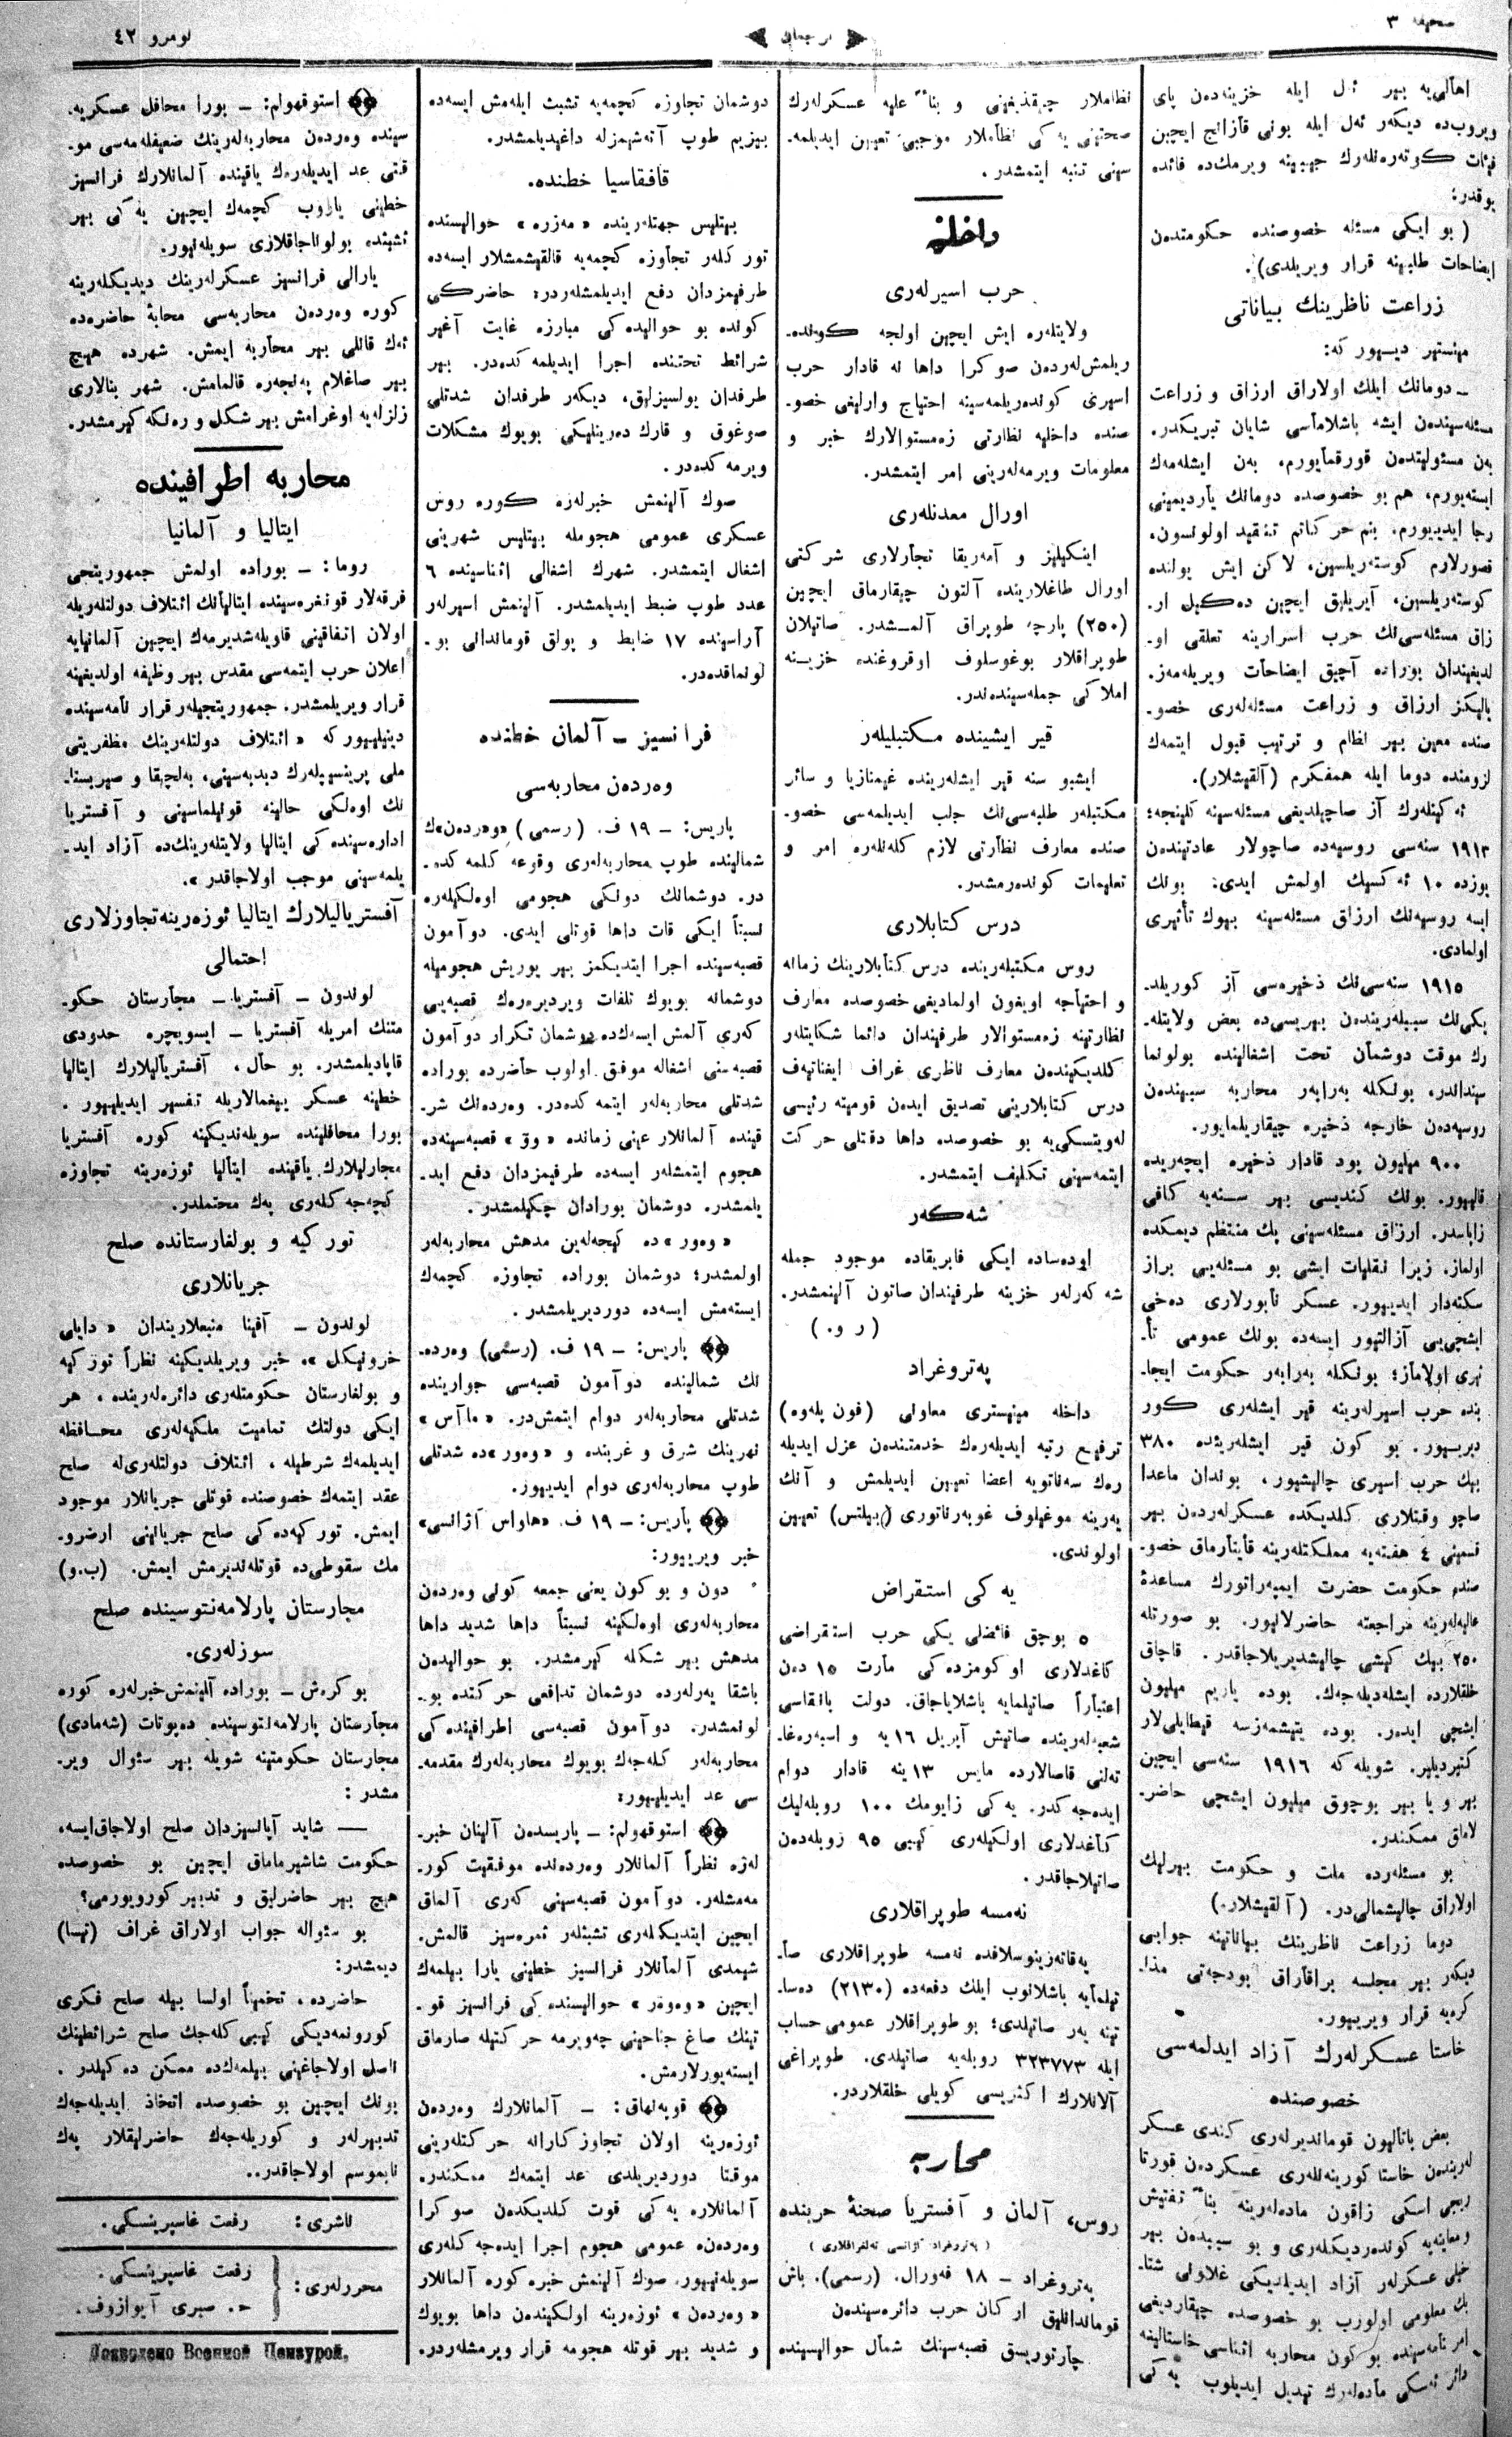 صحیفه ٣
ترجمان
نومرو ٤٢
اهالی‌یه بیر ئەل ایله خزینه‌دەن پای
ویروب‌ده دیکەر ئەل ایله بونی قازانج ایچین
فیئات کوتەرەنلەرك جیبینه ویرمك‌ده فائده
یوقدر؛
( بو ایکی مسئله خصوصنده حکومتدەن
ایضاحات طلبینه قرار ویریلدی).
زراعت ناظرینك بیاناتی
مینستیر دییور که:
ـ دومانك ایلك اولاراق ارزاق و زراعت
مسئله‌سیندەن ایشه باشلاماسی شایان تبریکدر.
بەن مسئولیتدەن قورقمایورم، بەن ایشلەمەك
ایستەیورم، هم بو خصوصده دومانك یاردیمینی
رجا ایدییورم. بنم حرکاتم تنقید اولونسون،
قصورلارم کوستەریلسین، لاکن ایش یولنده
کوستەریلسین، آیریلیق ایچین دەکیل ار.
زاق مسئله‌سی‌نك حرب اسرارینه تعلقی او.
لدیغیندان بوراده آچیق ایضاحات ویریلەمەز.
یالیکز ارزاق و زراعت مسئله‌لەری خصو.
صنده معین بیر نظام و ترتیب قبول ایتمەك
لزومنده دوما ایله همفکرم (آلقیشلار).
ئەکینلەرك آز صاچیلدیغی مسئله‌سینه کلینجه؛
١٩١٣ سنه‌سی روسیه‌ده صاچولار عادتیندەن
یوزده ١٠ ئەکسیك اولمش ایدی: بونك
ایسه روسیه‌نك ارزاق مسئله‌سینه بیوك تأثیری
اولمادی.
١٩١٥ سنه‌سی‌نك ذخیره‌سی آز کوریلد.
یکی‌نك سبیلەریندەن بیریسی‌ده بعض ولایتلە.
رك موقت دوشمان تحت اشغالینده بولونما
سیندادر، بونکله بەرابەر محاربه سبیندەن
روسیه‌دەن خارجه ذخیره چیقاریلمایور.
٩٠٠ میلیون پود قادار ذخیره ایچەریده
قالییور. بونك کندیسی بیر سنه‌یه کافی
زاپاسدر. ارزاق مسئله‌سینی پك منتظم دیمکده
اولماز. زیرا نقلیات ایشی بو مسئله‌یی براز
سکته‌دار ایدییور. عسکر نابورلاری دەخی
ایشچی‌یی آزالتیور ایسەده بونك عمومی تأ.
ثیری اولاماز؛ بونکله بەرابەر حکومت ایجا.
بنده حرب اسیرلەرینه قیر ایشلەری کور
دیرییور. بو کون قیر ایشلەرینده ٣٨٠
بیك حرب اسیری چالیشیور، بوندان ماعدا
صاچو وقتلاری کلدیکده عسکرلەردەن بیر
قسمینی ٤ هفته‌یه مملکتلەرینه قایتارماق خصو.
صنده حکومت حضرت ایمپەراتورك مساعدۀ
عالیه‌لەرینه مراجعته حاضرلانیور. بو صورتله
٢٥٠ بیك کیشی چالیشدیریلاجاقدر. قاچاق
خلقلارده ایشلەدیلەجەك. بوده یاریم میلیون
ایشچی ایدەر. بوده یتیشمەزسه قیطایلی‌لار
کتیردیلیر. شویله که ١٩١٦ سنه‌سی ایچین
بیر و یا بیر بوچوق میلیون ایشچی حاضر.
لاماق ممکندر.
بو مسئله‌رده ملت و حکومت بیرلیك
اولاراق چالیشمالی‌در. (آلقیشلار.)
دوما زراعت ناظرینك بیاناتینه جوابی
دیکەر بیر مجلسه براقاراق بودجه‌نی مذا.
کره‌یه قرار ویرییور.
خاستا عسکرلەرك آزاد ایدلمەسی
خصوصنده
بعض باتالیون قوماندیرلەری کندی عسکر
لەریندەن خاستا کورینەنلەری عسکردەن قورتا
ریجی اسکی زاقون ماده‌لەرینه بناءً تفتیش
و معاینه‌یه کوندەردیکلەری و بو سببدەن بیر
خیلی عسکرلەر آزاد ایدیلدیکی غلاونی شتا.
بك معلومی اولوزب بو خصوصده چیقاردیغی
امر نامه‌سینده بو کون محاربه اثناسی خاستالیغنه
دائر ئەسکی ماده‌لەرك تبدیل ایدیلوب یەکی
نظاملار چیقدیغینی و بناءً علیه عسکرلەرك
صحتینی یەکی نظاملار موجبی تعیین ایدیلمە.
سینی تنبه ایتمشدر.
داخلیه
حرب اسیرلەری
ولایتلەره ایش ایچین اولجه کوندە.
ریلمش‌لەردەن صوکرا داها نه قادار حرب
اسیری کوندەریلمەسینه احتیاج وارلیغی خصو.
صنده داخلیه نظارتی زەمستوالارك خبر و
معلومات ویرمەلەرینی امر ایتمشدر.
اورال معدنلەری
اینکیلیز و آمەریقا تجارلاری شرکتی
اورال طاغلارینده آلتون چیقارماق ایچین
(٢٥٠) پارچه طوپراق آلمشدر. صاتیلان
طوپراقلار بوغوسلوف اوقروغنده خزینه
املاکی جمله‌سیندەندر.
قیر ایشینده مکتبلیلەر
ایشبو سنه قیر ایشلەرینده غیمنازیا و سائر
مکتبلەر طلبه‌سی‌نك جلب ایدیلمەسی خصو.
صنده معارف نظارتی لازم کلەنلەره امر و
تعلیمات کوندەرمشدر.
درس کتابلاری
روس مکتبلەرینده درس کتابلارینك زمانه
و احتیاجه اویغون اولمادیغی خصوصده معارف
نظارتینه زەمستوالار طرفیندان دائما شکایتلەر
کلدیکیندەن معارف ناظری غراف ایغناتیەف
درس کتابلارینی تصدیق ایدەن قومیته رئیسی
لەویتسکی‌یه بو خصوصده داها دقتلی حرکت
ایتمەسینی تکلیف ایتمشدر.
شەکەر
اودەساده ایکی فابریقاده موجود جمله
شەکەرلەر خزینه طرفیندان صاتون آلینمشدر.
( ر و. )
پەتروغراد
داخله مینیستری معاونی (فون پلەوه)
ترفیع رتبه ایدیلەرەك خدمتندەن عزل ایدیله
رەك سەناتویه اعضا تعیین ایدیلمش و آنك
یەرینه موغیلوف غوبەرناتوری (پیلتس) تعیین
اولوندی.
یەکی استقراض
٥ بوچق فائضلی یکی حرب استقراضی
کاغدلاری اوکومزدەکی مارت ١٥ دەن
اعتباراً صاتیلمایه باشلایاجاق. دولت بانقاسی
شعبه‌لەرینده صاتیش آپریل ١٦یه و اسبەرەغا.
تەلنی قاصالارده مایس ١٣ینه قادار دوام
ایدەجەکدر. یەکی زایومك ١٠٠ روبله‌لیك
کاغدلاری اولکیلەری کیبی ٩٥ روبله‌دەن
صاتیلاجاقدر.
نەمسه طوپراقلاری
یەقاتەرینوسلافده نەمسه طوپراقلاری صا.
تیلمایه باشلانوب ایلك دفعه‌ده (٢١٣٠) دەسا.
تینه یەر صاتیلدی؛ بو طوپراقلار عمومی حساب
ایله ٣٢٣٧٧٣ روبله‌یه صاتیلدی. طوپراغی
آلانلارك اکثریسی کویلی خلقلاردر.
محاربه
روس، آلمان و آفستریا صحنۀ حربنده
( پەتروغراد آژانسی تەلغرافلاری )
پەتروغراد ـ ١٨ فەورال. (رسمی). باش
قوماندانلیق ارکان حرب دائره‌سیندەن
چارتوریسق قصبه‌سینك شمال حوالیسینده
دوشمان تجاوزه کچمەیه تشبث ایلەمش ایسەده
بیزیم طوپ آتەشیمزله داغیدیلمشدر.
قافقاسیا خطنده.
بیتلیس جهتلەرینده « مەزره » حوالیسنده
تورکلەر تجاوزه کچمەیه قالقیشمشلار ایسەده
طرفیمزدان دفع ایدیلمشلەردر؛ حاضرکی
کونده بو حوالیدەکی مبارزه غایت آغیر
شرائط تحتنده اجرا ایدیلمەکدەدر. بیر
طرفدان یولسیزلیق، دیکەر طرفدان شدتلی
صوغوق و قارك دەرینلیکی بویوك مشکلات
ویرمەکدەدر.
صوك آلینمش خبرلەره کوره روس
عسکری عمومی هجومله بیتلیس شهرینی
اشغال ایتمشدر. شهرك اشغالی اثناسینده ٦
عدد طوپ ضبط ایدیلمشدر. آلینمش اسیرلەر
آراسینده ١٧ ضابط و پولق قوماندانی بو.
لونماقدەدر.
فرانسیز ـ آلمان خطنده
وەردەن محاربەسی
پاریس: ـ ١٩ ف. (رسمی) «وەردەن»ك
شمالینده طوپ محاربەلەری وقوعه کلمەکدە.
در. دوشمانك دونکی هجومی اوەلکیلەره
نسبتاً ایکی قات داها قوتلی ایدی. دوآمون
قصبه‌سینده اجرا ایتدیکمز بیر یوریش هجومیله
دوشمانه بویوك تلفات ویردیرەرەك قصبه‌یی
کەری آلمش ایسەك‌ده دوشمان تکرار دوآمون
قصبه‌سنی اشغاله موفق اولوب حاضرده بوراده
شدتلی محاربەلەر ایتمەکدەدر. وەردەنك شر.
قینده آلمانلار عینی زمانده « وو » قصبه‌سینەده
هجوم ایتمشلەر ایسەده طرفیمزدان دفع اید.
یلمشدر. دوشمان بورادان چکیلمشدر.
« وەور » ده کیجەلەین مدهش محاربەلەر
اولمشدر؛ دوشمان بوراده تجاوزه کچمەك
ایستەمش ایسەده دوردیریلمشدر.
پاریس: ـ ١٩ ف. (رسمی) وەردە.
نك شمالینده دوآمون قصبه‌سی جوارینده
شدتلی محاربەلەر دوام ایتمش‌در. «ماآس»
نهرینك شرق و غربنده و «وەور»ده شدتلی
طوپ محاربەلەری دوام ایدییور.
پاریس: ـ ١٩ ف. «هاواس آژانسی»
خبر ویرییور:
دون و بو کون یعنی جمعه کونی وەردەن
محاربەلەری اوەلکینه نسبتاً داها شدید داها
مدهش بیر شکله کیرمشدر. بو حوالیدەن
باشقا یەرلەرده دوشمان تدافعی حرکتده بو.
لونمشدر. دوآمون قصبه‌سی اطرافیندەکی
محاربەلەر کلەجەك بویوك محاربەلەرك مقدمە.
سی عد ایدیلییور:
استوقهولم: ـ پاریسدەن آلینان خبر.
لەره نظراً آلمانلار وەردەنده موفقیت کور.
مەمشلەر. دوآمون قصبه‌سینی کەری آلماق
ایچین ایتدیکلەری تشبثلەر ثمره‌سیز قالمش.
شیمدی آلمانلار فرانسیز خطینی یارا بیلمەك
ایچین « وەوەر » حوالیسندەکی فرانسیز قو.
تینك صاغ جناحینی چەویرمه حرکتیله صارماق
ایستەیورلارمش.
قوپەنهاق: ـ آلمانلارك وەردەن
ئوزەرینه اولان تجاوزکارانه حرکتلەرینی
موقتا دوردیریلدی عد ایتمەك ممکندر.
آلمانلاره یەکی قوت کلدیکدەن صوکرا
وەردەنه عمومی هجوم اجرا ایدەجەکلەری
سویلەنییور. صوك آلینمش خبره کوره آلمانلار
« وەردەن » ئوزەرینه اولکیندەن داها بویوك
و شدید بیر قوتله هجومه قرار ویرمشلەردر.
استوقهولم: ـ بورا محافل عسکریە.
سینده وەردەن محاربەلەرینك ضعیفلەمەسی مو.
قتی عد ایدیلەرەك یاقینده آلمانلارك فرانسیز
خطینی یاروب کچمەك ایچین یەکی بیر
تشبثده بولوناجاقلاری سویلەنییور.
یارالی فرانسیز عسکرلەرینك دیدیکلەرینه
کوره وەردەن محاربەسی محابۀ حاضرەده
ئەك قانلی بیر محاربه ایمش. شهرده هیچ
بیر صاغلام پەنجەره قالمامش. شهر بنالاری
زلزله‌یه اوغرامش بیر شکل و رەنکه کیرمشدر.
محاربه اطرافینده
ایتالیا و آلمانیا
روما: ـ بوراده اولمش جمهوریتجی
فرقه‌لار قونغره‌سینده ایتالیانك ائتلاف دولتلەریله
اولان اتفاقینی قاویلەشدیرمەك ایچین آلمانیایه
اعلان حرب ایتمەسی مقدس بیر وظیفه اولدیغینه
قرار ویریلمشدر. جمهوریتجیلەر قرار نامه‌سینده
دینیلییور که « ائتلاف دولتلەرینك مظفریتی
ملی پرینسیپلەرك دبدبه‌سینی، بەلچیقا و صیربستا.
نك اوەلکی حالینه قویلماسینی و آفستریا
اداره‌سیندەکی ایتالیا ولایتلەرینك‌ده آزاد اید.
یلمەسینی موجب اولاجاقدر ».
آفستریالیلارك ایتالیا ئوزەرینه تجاوزلاری
احتمالی
لوندون ـ آفستریا ـ مجارستان حکو.
متنك امریله آفستریا ـ ایسویچره حدودی
قاپادیلمشدر. بو حال، آفستریالیلارك ایتالیا
خطینه عسکر ییغمالاریله تفسیر ایدیلییور.
بورا محافلینده سویلەندیکینه کوره آفستریا
مجارلیلارك یاقینده ایتالیا ئوزەرینه تجاوزه
کچەجەکلەری پەك محتملدر.
تورکیه و بولغارستانده صلح
جریانلاری
لوندون ـ آفینا منبعلاریندان « دایلی
خرونیکل ». خبر ویریلدیکینه نظراً تورکیه
و بولغارستان حکومتلەری دائره‌لەرینده، هر
ایکی دولتك تمامیت ملکیه‌لەری محافظه
ایدیلمەك شرطیله، ائتلاف دولتلەری‌له صلح
عقد ایتمەك خصوصنده قوتلی جریانلار موجود
ایمش. تورکیەدەکی صلح جریانینی ارضرو.
مك سقوطی‌ده قوتلەندیرمش ایمش. (ب.و)
مجارستان پارلامەنتوسینده صلح
سوزلەری.
بوکرەش ـ بوراده آلینمش خبرلەره کوره
مجارستان پارلامەنتوسینده دەپوتات (شەمادی)
مجارستان حکومتینه شویله بیر سئوال ویر.
مشدر:
— شاید آپانسیزدان صلح اولاجاق‌ایسه،
حکومت شاشیرماماق ایچین بو خصوصده
هیچ بیر حاضرلیق و تدبیر کورویورمی؟
بو سئواله جواب اولاراق غراف (تیسا)
دیمشدر:
حاضرده، تخمیناً اولسا بیله صلح فکری
کورونمەدیکی کیبی کلەجك صلح شرائطینك
ناصل اولاجاغینی بیلمەك‌ده ممکن دەکیلدر.
بونك ایچین بو خصوصده اتخاذ ایدیلەجەك
تدبیرلەر و کوریلەجەك حاضرلیقلار پەك
ناموسم اولاجاقدر..
ناشری: رفعت غاسپرینسکی.
محررلەری: رفعت غاسپرینسکی.
ح. صبری آیوازوف.
Дозволено Военной Цензурой.